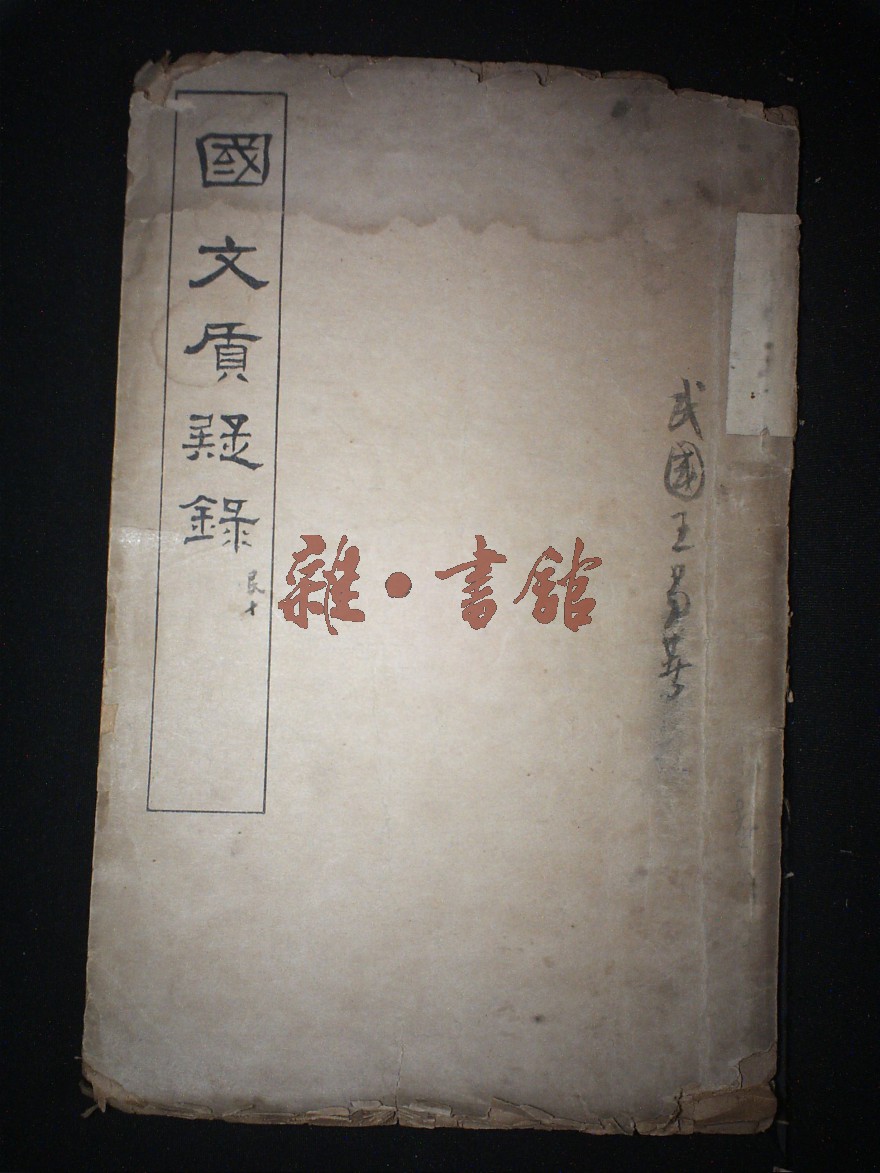 國文質疑錄
民十
雜·書館
民國王